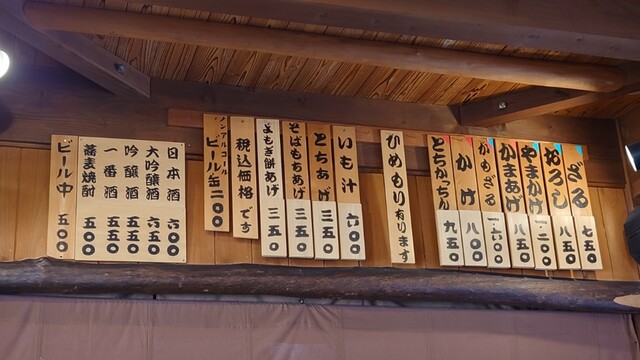 ざる 七五〇
おろし 八五〇
やまかけ 一二〇〇
かまあげ 八五〇
かもざる 一六〇〇
かけ 八〇〇
とちかちん 九五〇
ひめもり有ります
いも汁 六〇〇
とちあげ 三五〇
そばもちあげ 三五〇
よもぎ餅あげ 三五〇
税込価格です
ノンアルコール
ビール缶 三〇〇
日本酒 六〇〇
大吟醸酒 六五〇
吟醸酒 五五〇
一番酒 五五〇
蕎麦焼酎 五〇〇
ビール中 五〇〇